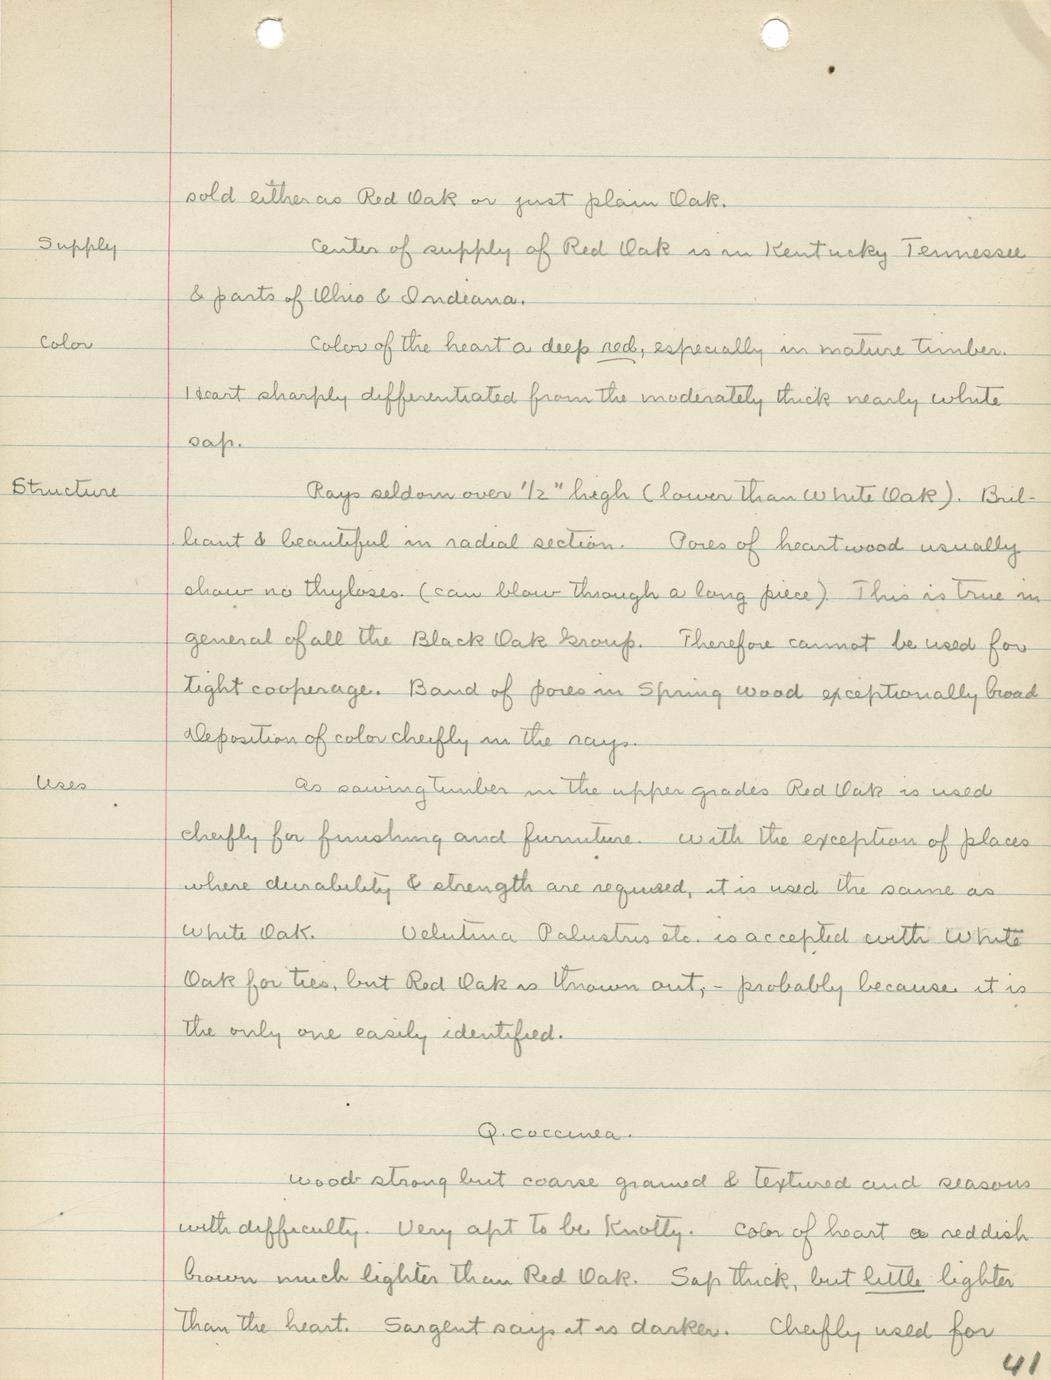 sold either as Red Oak or just plain Oak.
Supply Center of supply of Red Oak is in Kentucky Tennessee
& parts of Ohio & Indiana.
Color Color of the heart a deep red, especially in mature timber.
Heart sharply differentiated from the moderately thick nearly white
sap.
Structure Rays seldom over 1/2" high (lower than White Oak). Bril-
liant & beautiful in radial section. Pores of heartwood usually
show no thyloses. (can blow through a long piece) This is true in
general of all the Black Oak Group. Therefore cannot be used for
tight cooperage. Band of pores in Spring wood exceptionally broad
Deposition of color cheifly in the rays.
Uses As sawing timber in the upper grades Red Oak is used
cheifly for finishing and furniture. With the exception of places
where durability & strength are required, it is used the same as
White Oak. Velutina Palustris etc. is accepted with White
Oak for ties, but Red Oak is thrown out, - probably because it is
the only one easily identified.
Q. coccinea.
Wood strong but coarse grained & textured and seasons
with difficulty. Very apt to be Knotty. Color of heart a reddish
brown much lighter than Red Oak. Sap thick, but little lighter
than the heart. Sargent says it is darker. Cheifly used for
41